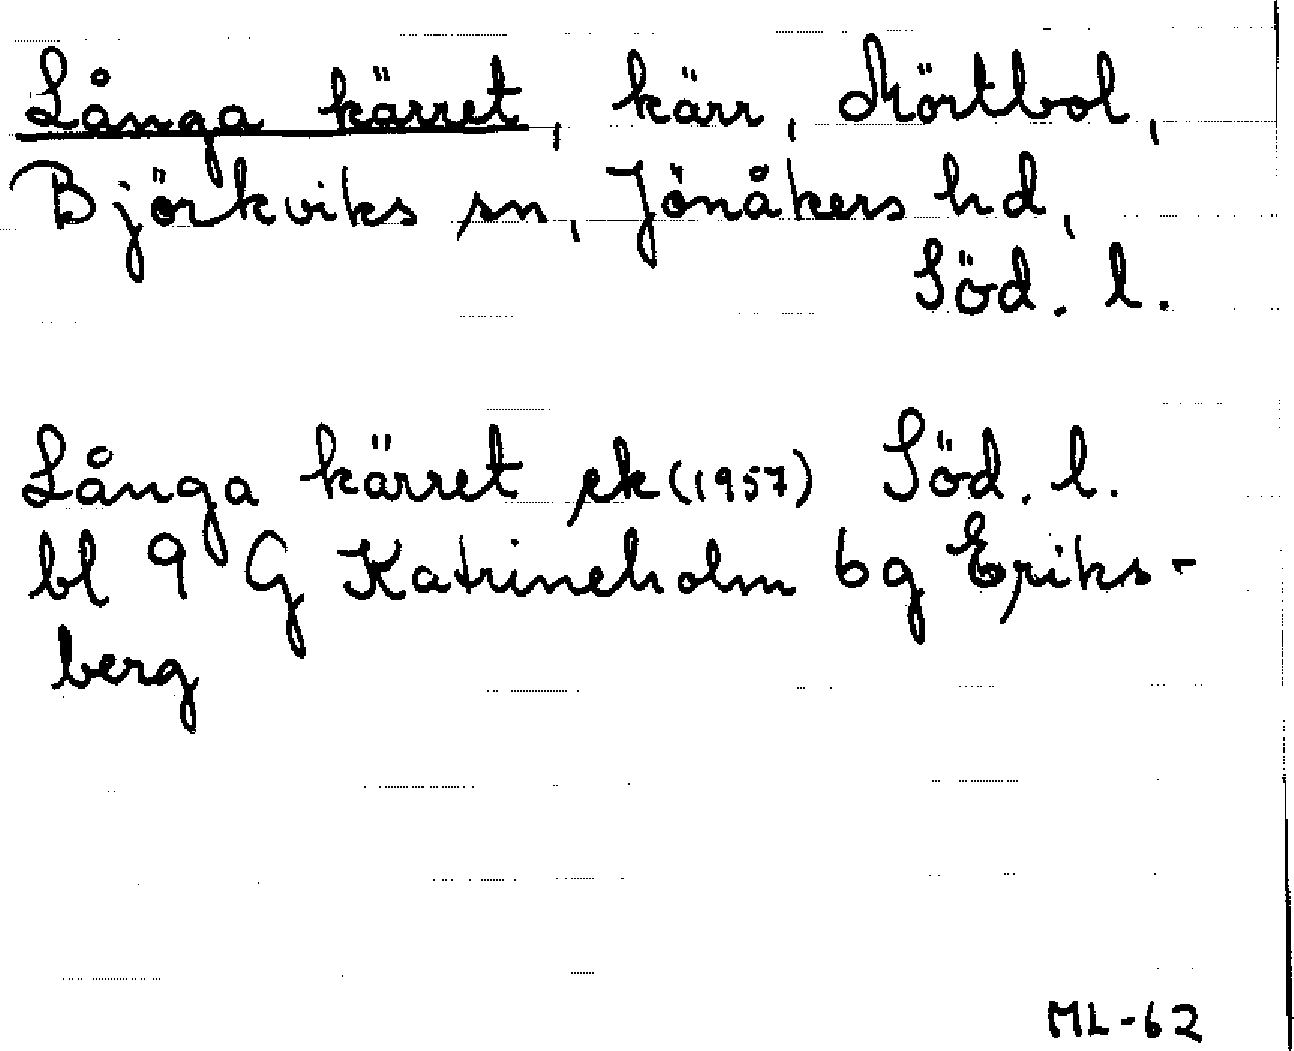 Långa kärret, kärr, Mörtbol,
Björkviks sn, Jönåkers hd,
Söd. l.
Långa kärret ek (1957) Söd. l.
bl 9 G Katrineholm 6g Eriks-
berg
ML-62